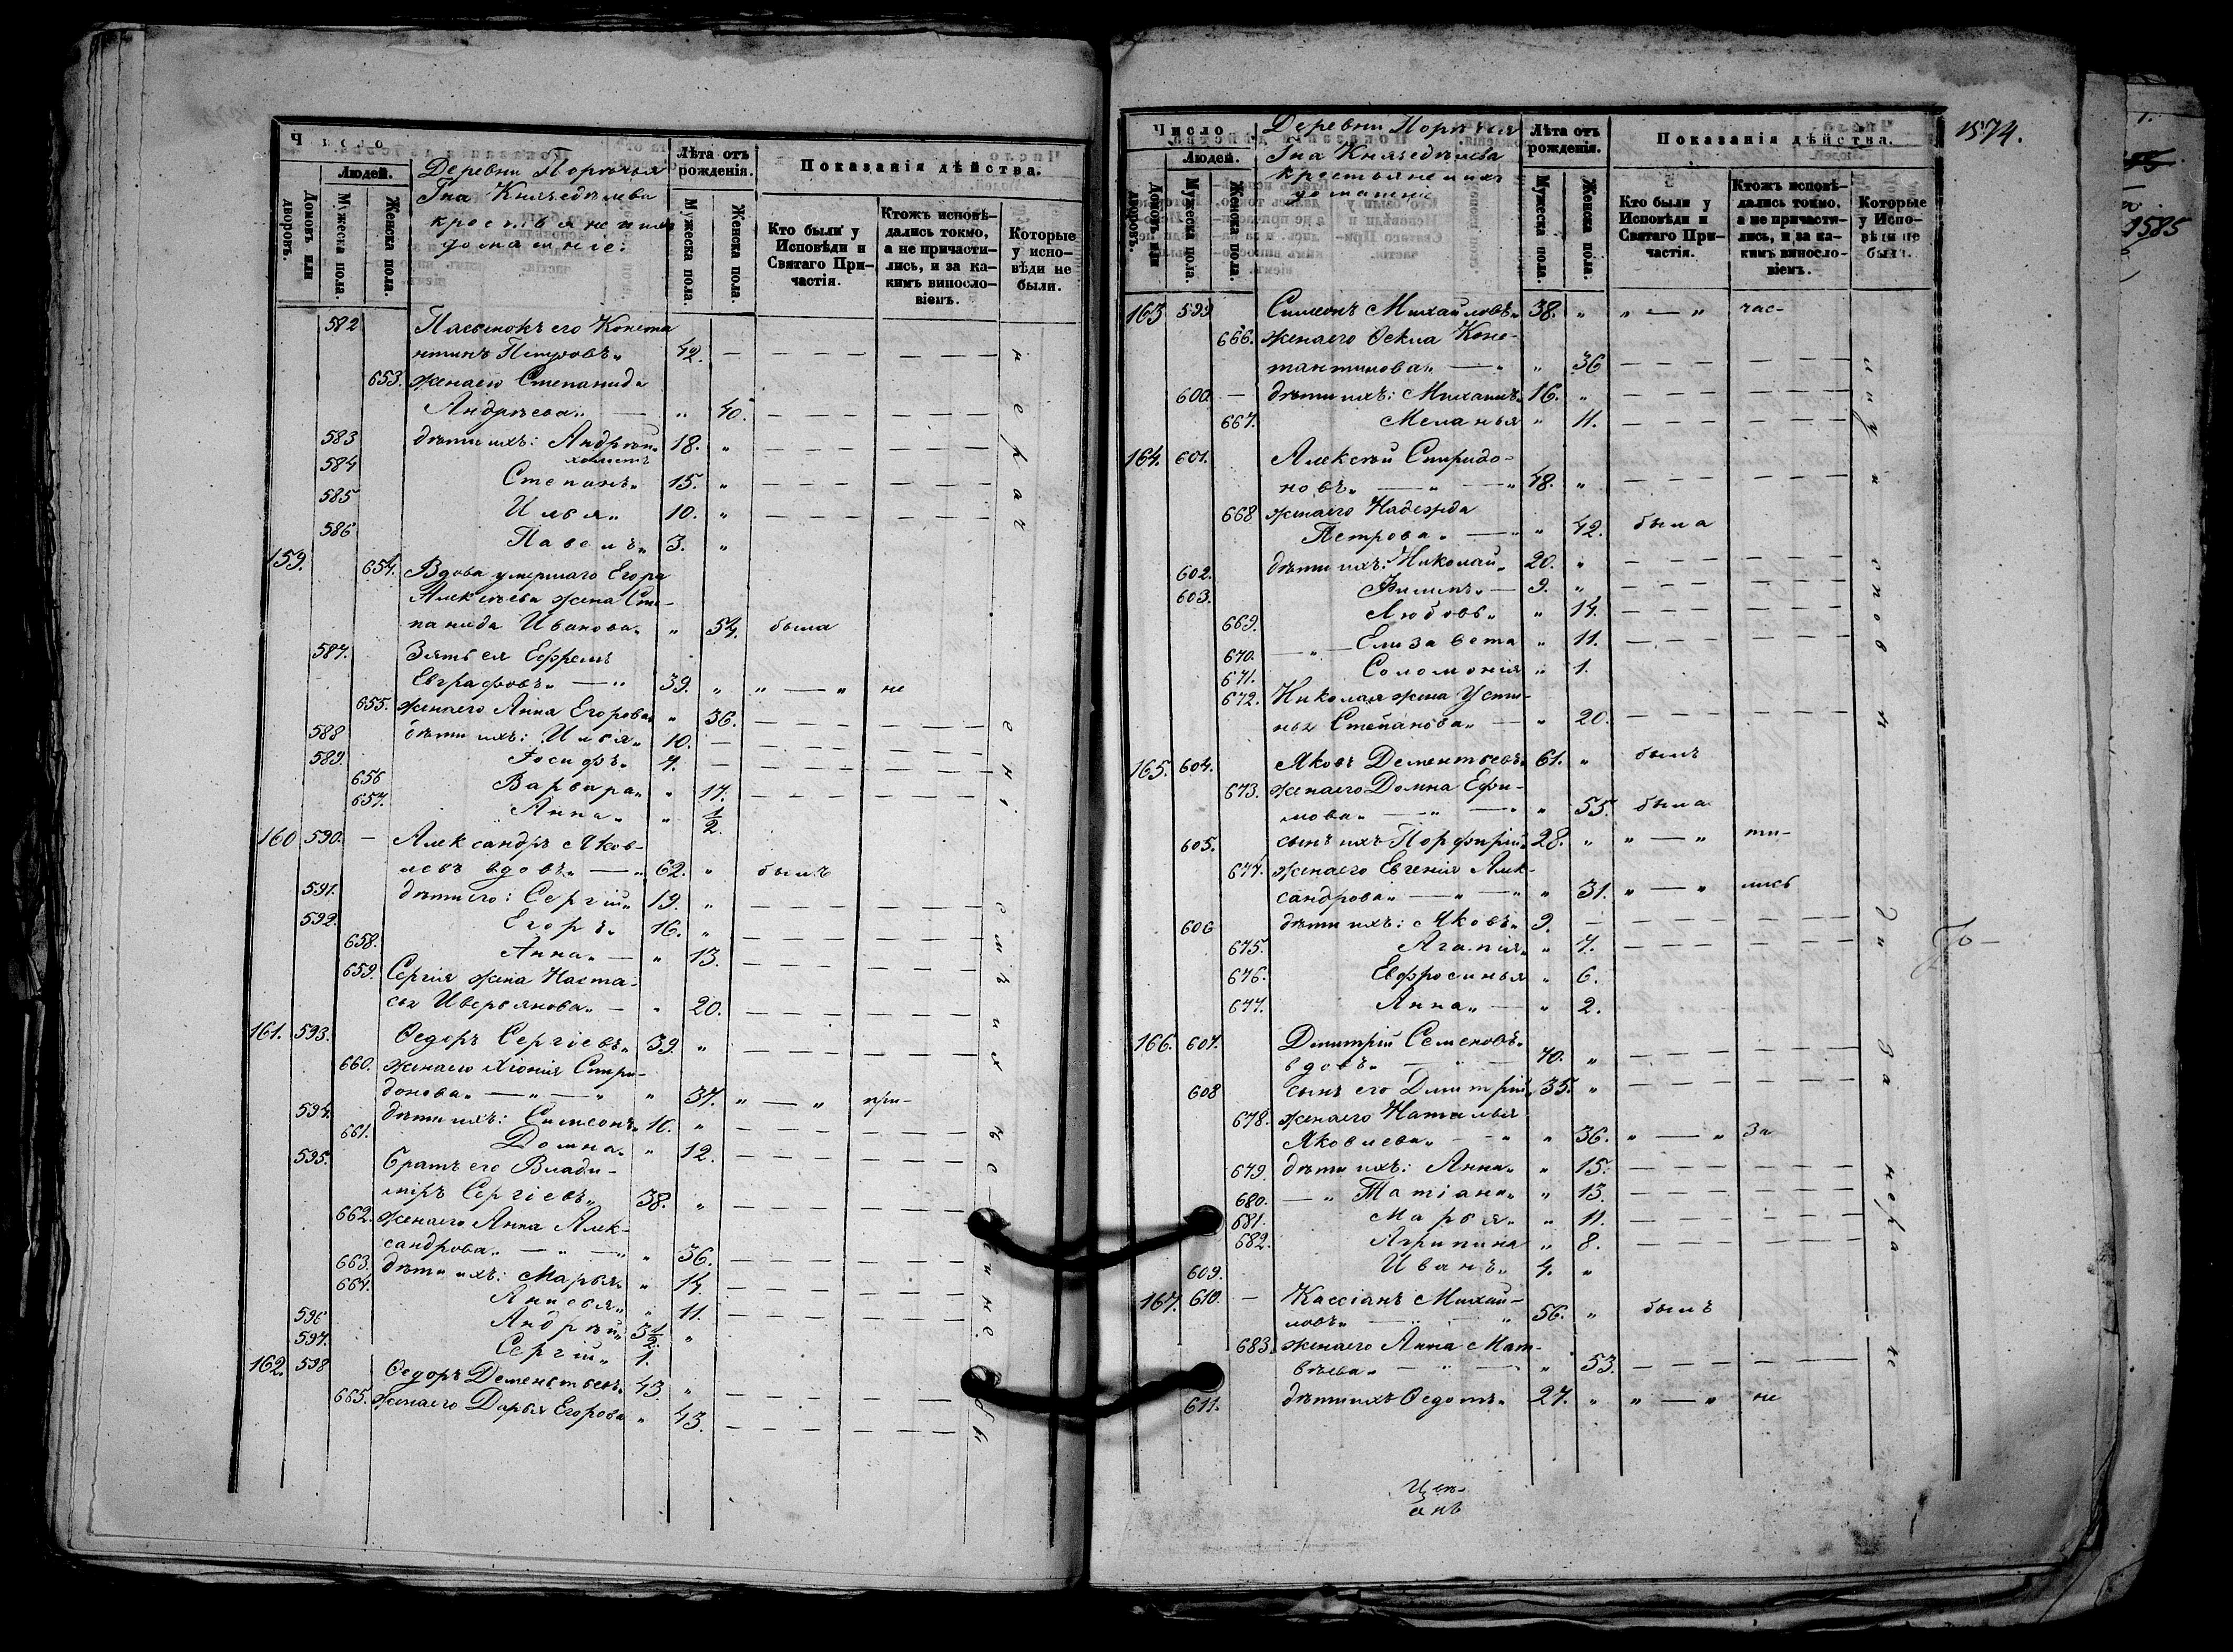 Число
Людей.
Домовъ или дворовъ.
Мужеска пола.
Женска пола.
Деревни Порѣчья
Гна Князедѣлева
крестьяне и ихъ
домашніе:
Лѣта отъ рожденія.
Мужеска пола.
Женска пола.
Показанія дѣйства.
Кто были у Исповѣди и Святаго Причастія.
Ктожъ исповѣ-
дались токмо,
а не причасти-
лись, и за ка-
кимъ винosло-
віемъ.
Которые
у испо-
вѣди не
были.
582 Пасынокъ его Конста
нтинъ Петровъ 42.
653. жена его Степанида
Андреева 40.
583 дѣти ихъ: Андрей 18.
холостъ
584 Степанъ 15.
585 Илья 10.
586 Павелъ 3.
159. 654. Вдова умершаго Егора
Алексѣева жена Сте-
панида Иванова 54. была
587. Зять ея Ефремъ
Евграфовъ 39. не
655. жена его Анна Егорова 36.
588 дѣти ихъ: Илья 10.
589. Іосифъ 7.
656 Варвара 17.
657. Анна 1/2.
160 590. Александръ Яков-
левъ вдовъ 62. былъ
591. дѣти его: Сергій 19.
592. Егоръ 16.
658. Анна 13.
659. Сергія жена Наста-
сья Иверьянова 20.
161. 593. Ѳедоръ Сергіевъ 39.
660. жена его Хіонія Спири-
донова 37. при-
594. дѣти ихъ: Симеонъ 16.
661. Домна 12.
595. братъ его Влади-
міръ Сергіевъ 38.
662. жена его Анна Алек-
сандрова 36.
663. дѣти ихъ: Марья 14.
664. Анисья 11.
596 Андрей 3 1/2
597. Сергій 1.
162. 598 Ѳедоръ Дементьевъ 43.
665. жена его Дарья Егорова 43.
1574.
Число
Людей.
Домовъ или дворовъ.
Мужеска пола.
Женска пола.
Деревни Порѣчья
Гна Князедѣлева
крестьяне и ихъ
домашніе
Лѣта отъ рожденія.
Мужеска пола.
Женска пола.
Показанія дѣйства.
Кто были у Исповѣди и Святаго Причастія.
Ктожъ исповѣ-
дались токмо,
а не причасти-
лись, и за ка-
кимъ виносло-
віемъ.
Которые
у Испо-
вѣди не
были.
163 599 Симеонъ Михайловъ 38. час-
666. жена его Ѳекла Конс-
тантинова 36
600 дѣти ихъ: Михаилъ 16.
667. Меланья 11.
164. 601. Алексѣй Спиридо-
новъ 48.
668 жена его Надежда
Петрова 42. была
602. дѣти ихъ: Николай 20.
603. Филипъ 9.
669. Любовь 14.
670. Елизавета 11.
671. Соломонія 1.
672. Николая жена Усти-
нья Степанова 20.
165. 604. Яковъ Дементьевъ 61. былъ
673. жена его Домна Ефи-
мова 55. была
605. сынъ ихъ Порфирій 28. ти-
674. жена его Евгенія Алек-
сандрова 31. лись
606 дѣти ихъ: Яковъ 9.
675. Агапія 7.
676. Евфросинья 6.
677. Анна 2.
166. 607. Димитрій Семеновъ
вдовъ 70.
608 сынъ его Димитрій 35.
678. жена его Наталья
Яковлева 36. За
679. дѣти ихъ: Анна 15.
680. Татіана 13.
681. Марья 11.
682. Агрипина 8.
609. Иванъ 4.
167. 610. Кассіанъ Михай-
ловъ 56. былъ
683. жена его Анна Мат-
вѣева 53.
611. дѣти ихъ Ѳедотъ 27. не
1585